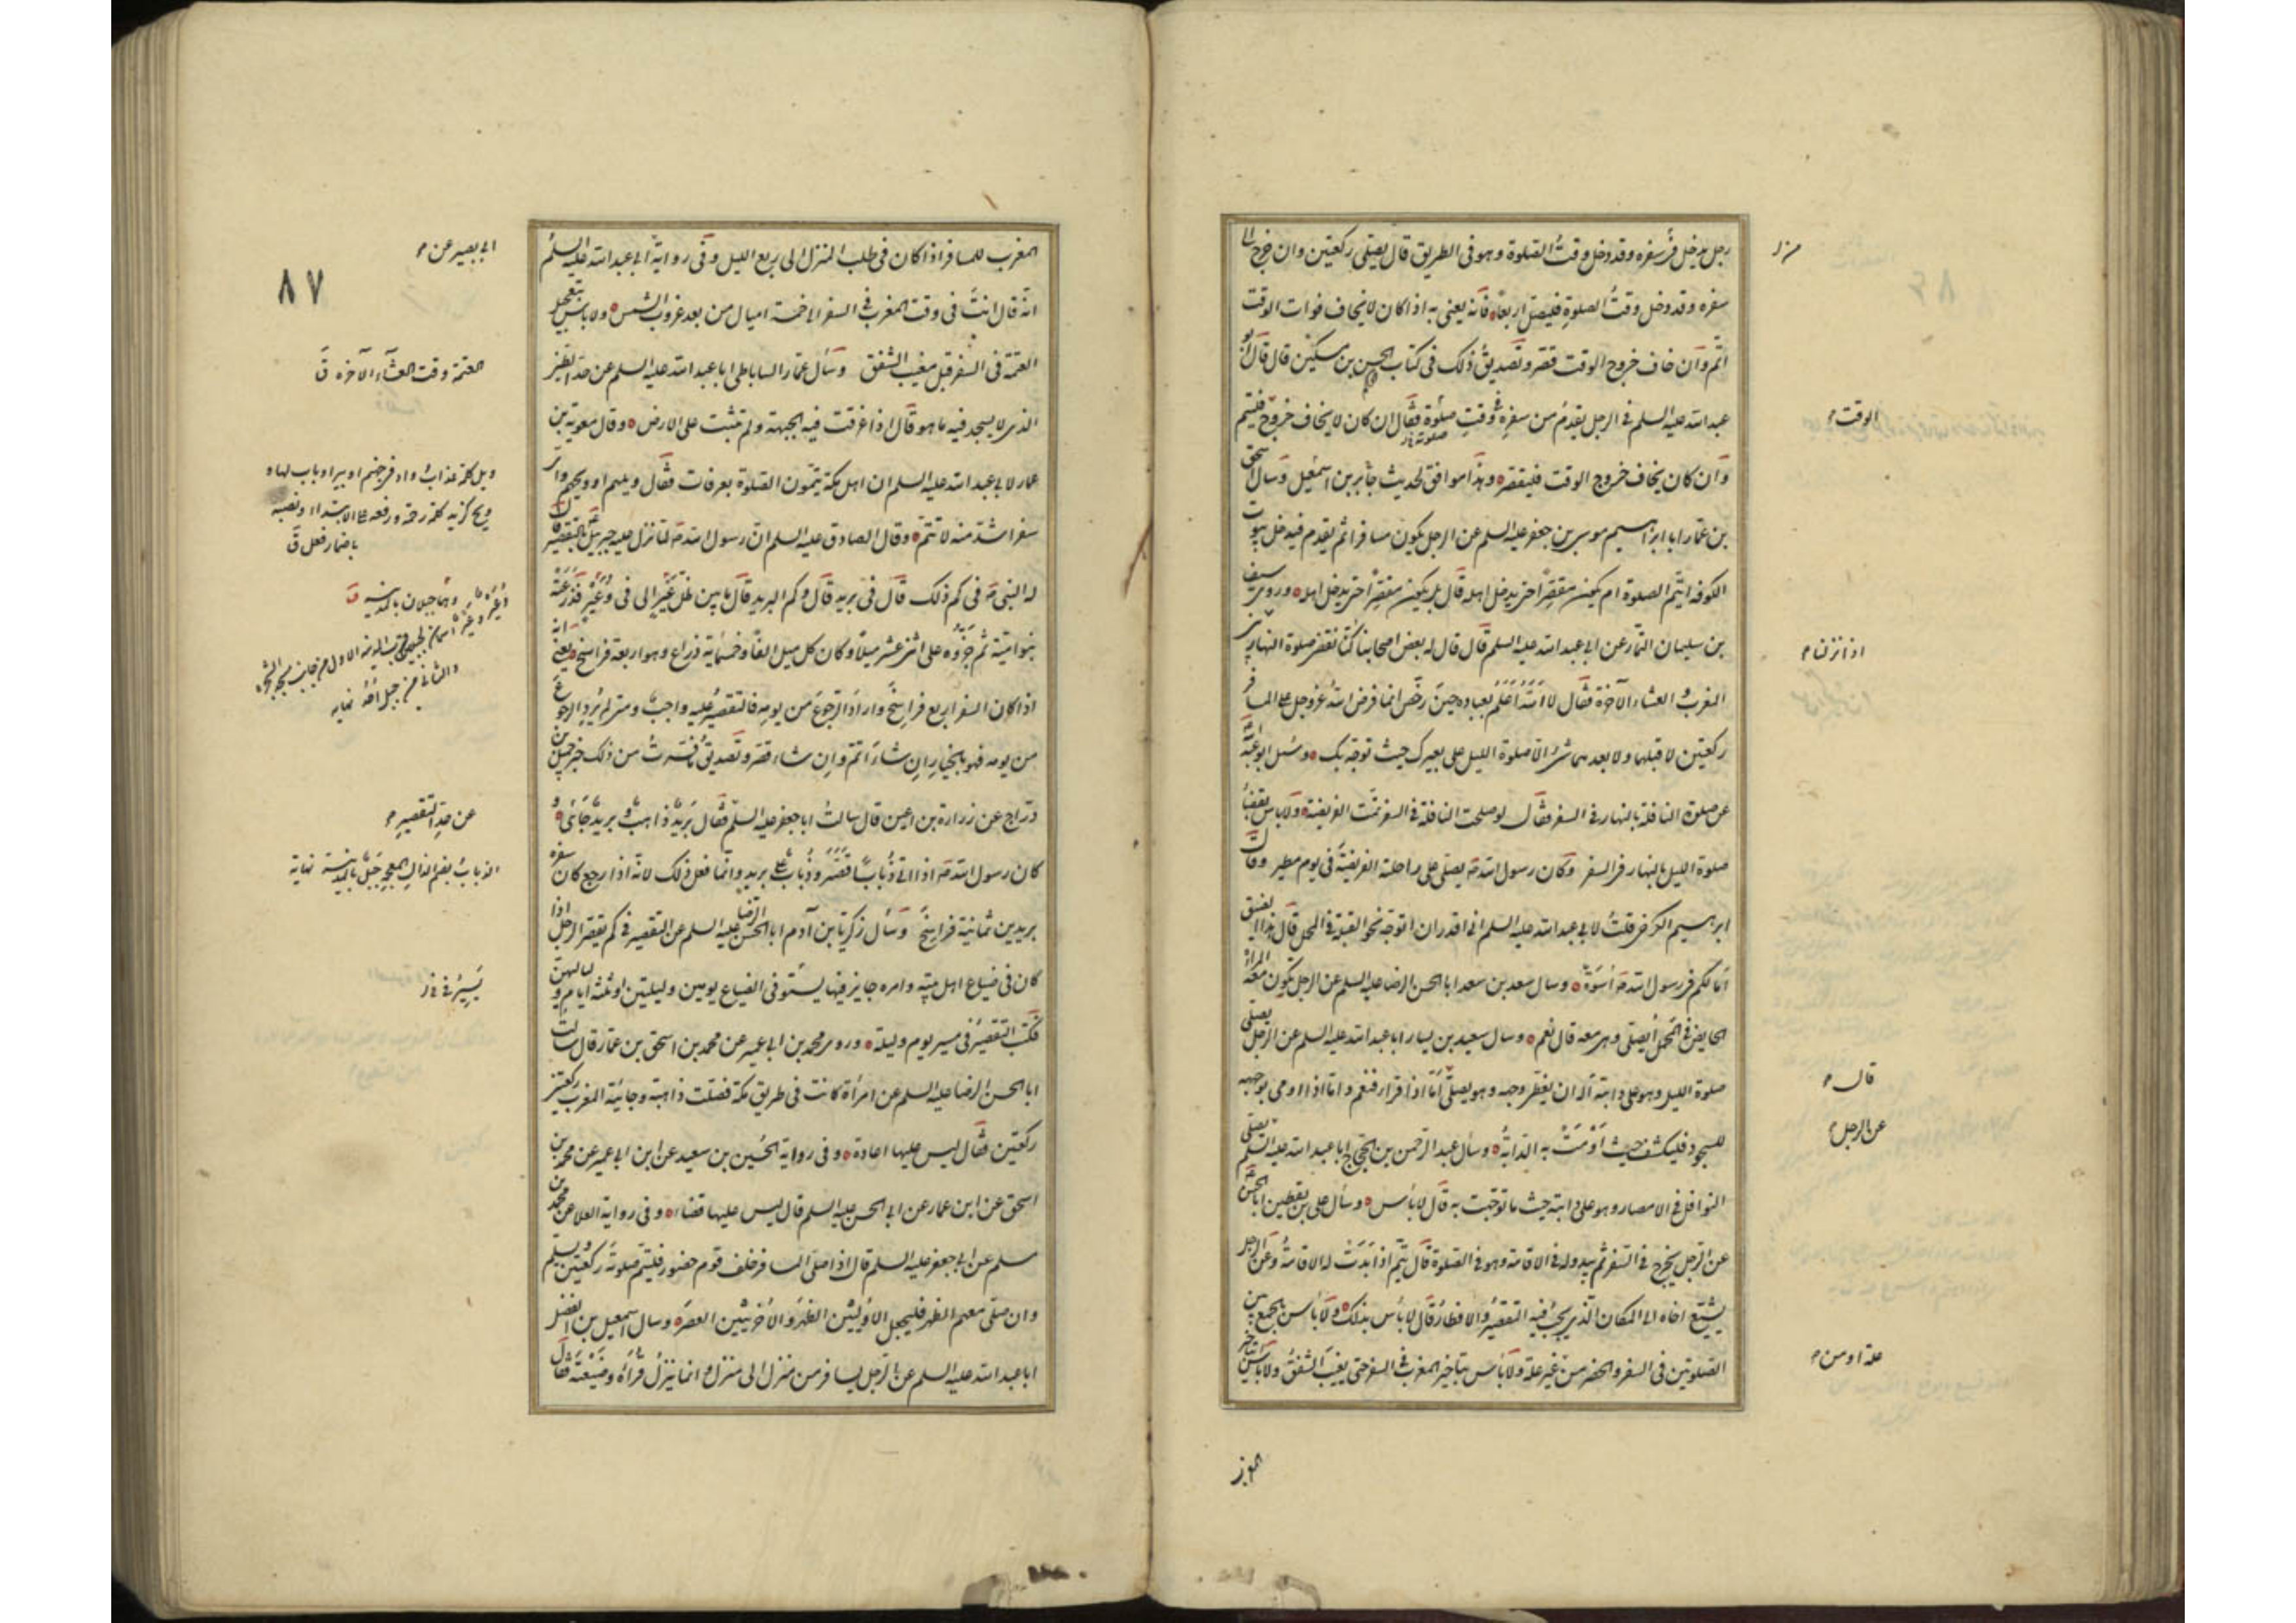 رجل يدخل من سفره وقد دخل وقت الصلوة وهو فى الطريق قال يصلى ركعتين وان خرج الى
سفره وقد دخل وقت الصلوة فليصل اربعا فانه يعنى به اذا كان لا يخاف فوات الوقت
اتم وان خاف خروج الوقت قصر وتصديق ذلك فى كتاب الحكم بن مسكين قال قال ابو
عبد الله عليه السلم فى الرجل يقدم من سفره فى وقت صلوة فقال ان كان لا يخاف خروج فليتم
وان كان يخاف خروج الوقت فليقصر وهذا موافق لحديث جابر بن اسمعيل وسال اسحق
بن عمار ابا ابراهيم موسى بن جعفر عليه السلم عن الرجل يكون مسافرا ثم يقدم فيدخل بيوت
الكوفه ايتم الصلوة ام يكون مقصرا حتى يدخل اهله قال بل يكون مقصرا حتى يدخل اهله وروى سيف
بن سليمان التمار عن ابى عبد الله عليه السلم قال قال له بعض اصحابنا كنا نقضى صلوة النهار بين
المغرب والعشاء الآخرة فقال لا الله اعلم بعباده حين رخص انما فرض الله عز وجل على المسافر
ركعتين لا قبلهما ولا بعدهما شئ الا صلوة الليل على بعيرك حيث توجه بك وسئل ابو عبد الله
عن صلوة النافلة بالنهار فى السفر فقال لو صلحت النافلة فى السفر تمت الفريضة ولا باس بقضاء
صلوة الليل بالنهار فى السفر وكان رسول الله ص يصلى على راحلته الفريضة فى يوم مطير وقال
ابرهيم الكرخى قلت لابى عبد الله عليه السلم انى اقدر ان اتوجه نحو القبلة فى المحمل قال هذا الضيق
اما لكم فى رسول الله ص اسوة وسال سعد بن سعد ابا الحسن الرضا عليه السلم عن الرجل يكون معه المراة
الحايض فى المحمل ايصلى وهى معه قال نعم وسال سعيد بن يسار ابا عبد الله عليه السلم عن الرجل يصلى
صلوة الليل وهو على دابته اله ان يغطى وجهه وهو يصلى اما اذا قرا فنعم واما اذا اومى بوجهه
للسجود فليكشفه حيث اومت به الدابة وسال عبد الرحمن بن الحجاج ابا عبد الله عليه السلم يصلى
النوافل فى الامصار وهو على دابته حيث ما توجهت به قال لا باس وسال على بن يقطين ابا الحسن
عن الرجل يخرج فى السفر ثم يبدو له فى الاقامة وهو فى الصلوة قال يتم اذا بدت له الاقامة وعن الرجل
يشيع اخاه الى المكان الذى يجب فيه التقصير والافطار قال لا باس بذلك ولا باس بالجمع بين
الصلوتين فى السفر والحضر من غير علة ولا باس بتاخير المغرب فى السفر حتى يغيب الشفق ولا باس بتاخير
الوقت
اذا نزلنا
قال
عن الرجل
علة او من
المغرب للمسافر اذا كان فى طلب المنزل الى ربع الليل وفى رواية ابى عبد الله عليه السلم
انه قال انت فى وقت المغرب فى السفر الى خمسة اميال من بعد غروب الشمس ولا باس بتعجيل
العتمة فى السفر قبل مغيب الشفق وسال عمار الساباطى ابا عبد الله عليه السلم عن حد الطين
الذى لا يسجد فيه ما هو قال اذا غرقت فيه الجبهة ولم تثبت على الارض وقال معوية بن
عمار لابى عبد الله عليه السلم ان اهل مكة يتمون الصلوة بعرفات فقال ويلهم او ويحهم واى
سفر اشد منه لا تتم وقال الصادق عليه السلم ان رسول الله ص لما نزل عليه جبرئيل بالتقصير قال
له النبى ص فى كم ذلك قال فى بريد قال وكم البريد قال ما بين ظل عير الى فئ وعير فذرعته
بنو امية ثم جزؤه على اثنى عشر ميلا وكان كل ميل الفا وخمسمائة ذراع وهو اربعة فراسخ يعنى
اذا كان السفر اربع فراسخ واراد الرجوع من يومه فالتقصير عليه واجب ومتى لم يرد الرجوع
من يومه فهو بالخيار ان شاء اتم وان شاء قصر وتصديق ما فسرت من ذلك خبر جميل بن
دراج عن زرارة بن اعين قال سالت ابا جعفر عليه السلم فقال بريد ذاهب وبريد جائى و
كان رسول الله ص اذا اتى ذبابا قصر وذباب على بريد وانما فعل ذلك لانه اذا رجع كان سفره
بريدين ثمانية فراسخ وسال زكريا بن آدم ابا الحسن الرضا عليه السلم عن التقصير فى كم يقصر الرجل اذا
كان فى ضياع اهل بيته وامره جايز فيها يسير فى الضياع يومين وليلتين او ثلثة ايام ولياليهن
فكتب التقصير فى مسير يوم وليلة وروى محمد بن ابى عمير عن محمد بن اسحق بن عمار قال سالت
ابا الحسن الرضا عليه السلم عن امرأة كانت فى طريق مكة فصلت ذاهبة وجائية المغرب ركعتين
ركعتين فقال ليس عليها اعادة وفى رواية الحسين بن سعيد عن ابن ابى عمير عن محمد بن
اسحق عن ابن عمار عن ابى الحسن عليه السلم قال ليس عليها قضاء وفى رواية العلا عن محمد بن
مسلم عن ابى جعفر عليه السلم قال اذا صلى المسافر خلف قوم حضور فليتم صلوته ركعتين ويسلم
وان صلى معهم الظهر فليجعل الاوليين الظهر والاخريين العصر وسال اسمعيل بن الفضل
ابا عبد الله عليه السلم عن الرجل يسافر من منزل الى منزل وانما ينزل قراه وضيعته فقال
٨٧
ابى بصير عن
العتمة وقت العشاء الآخرة ق
ويل كلمة عذاب واد فى جهنم او بير او باب لها و
ويح كزيد كلمة رحمة ورفعه على الابتداء ونصبه
باضمار فعل ق
وهما جبلان بالمدينه ق
عن حد التقصير
الذباب بضم الذال المعجمة جبل بالمدينة نهاية
يسير